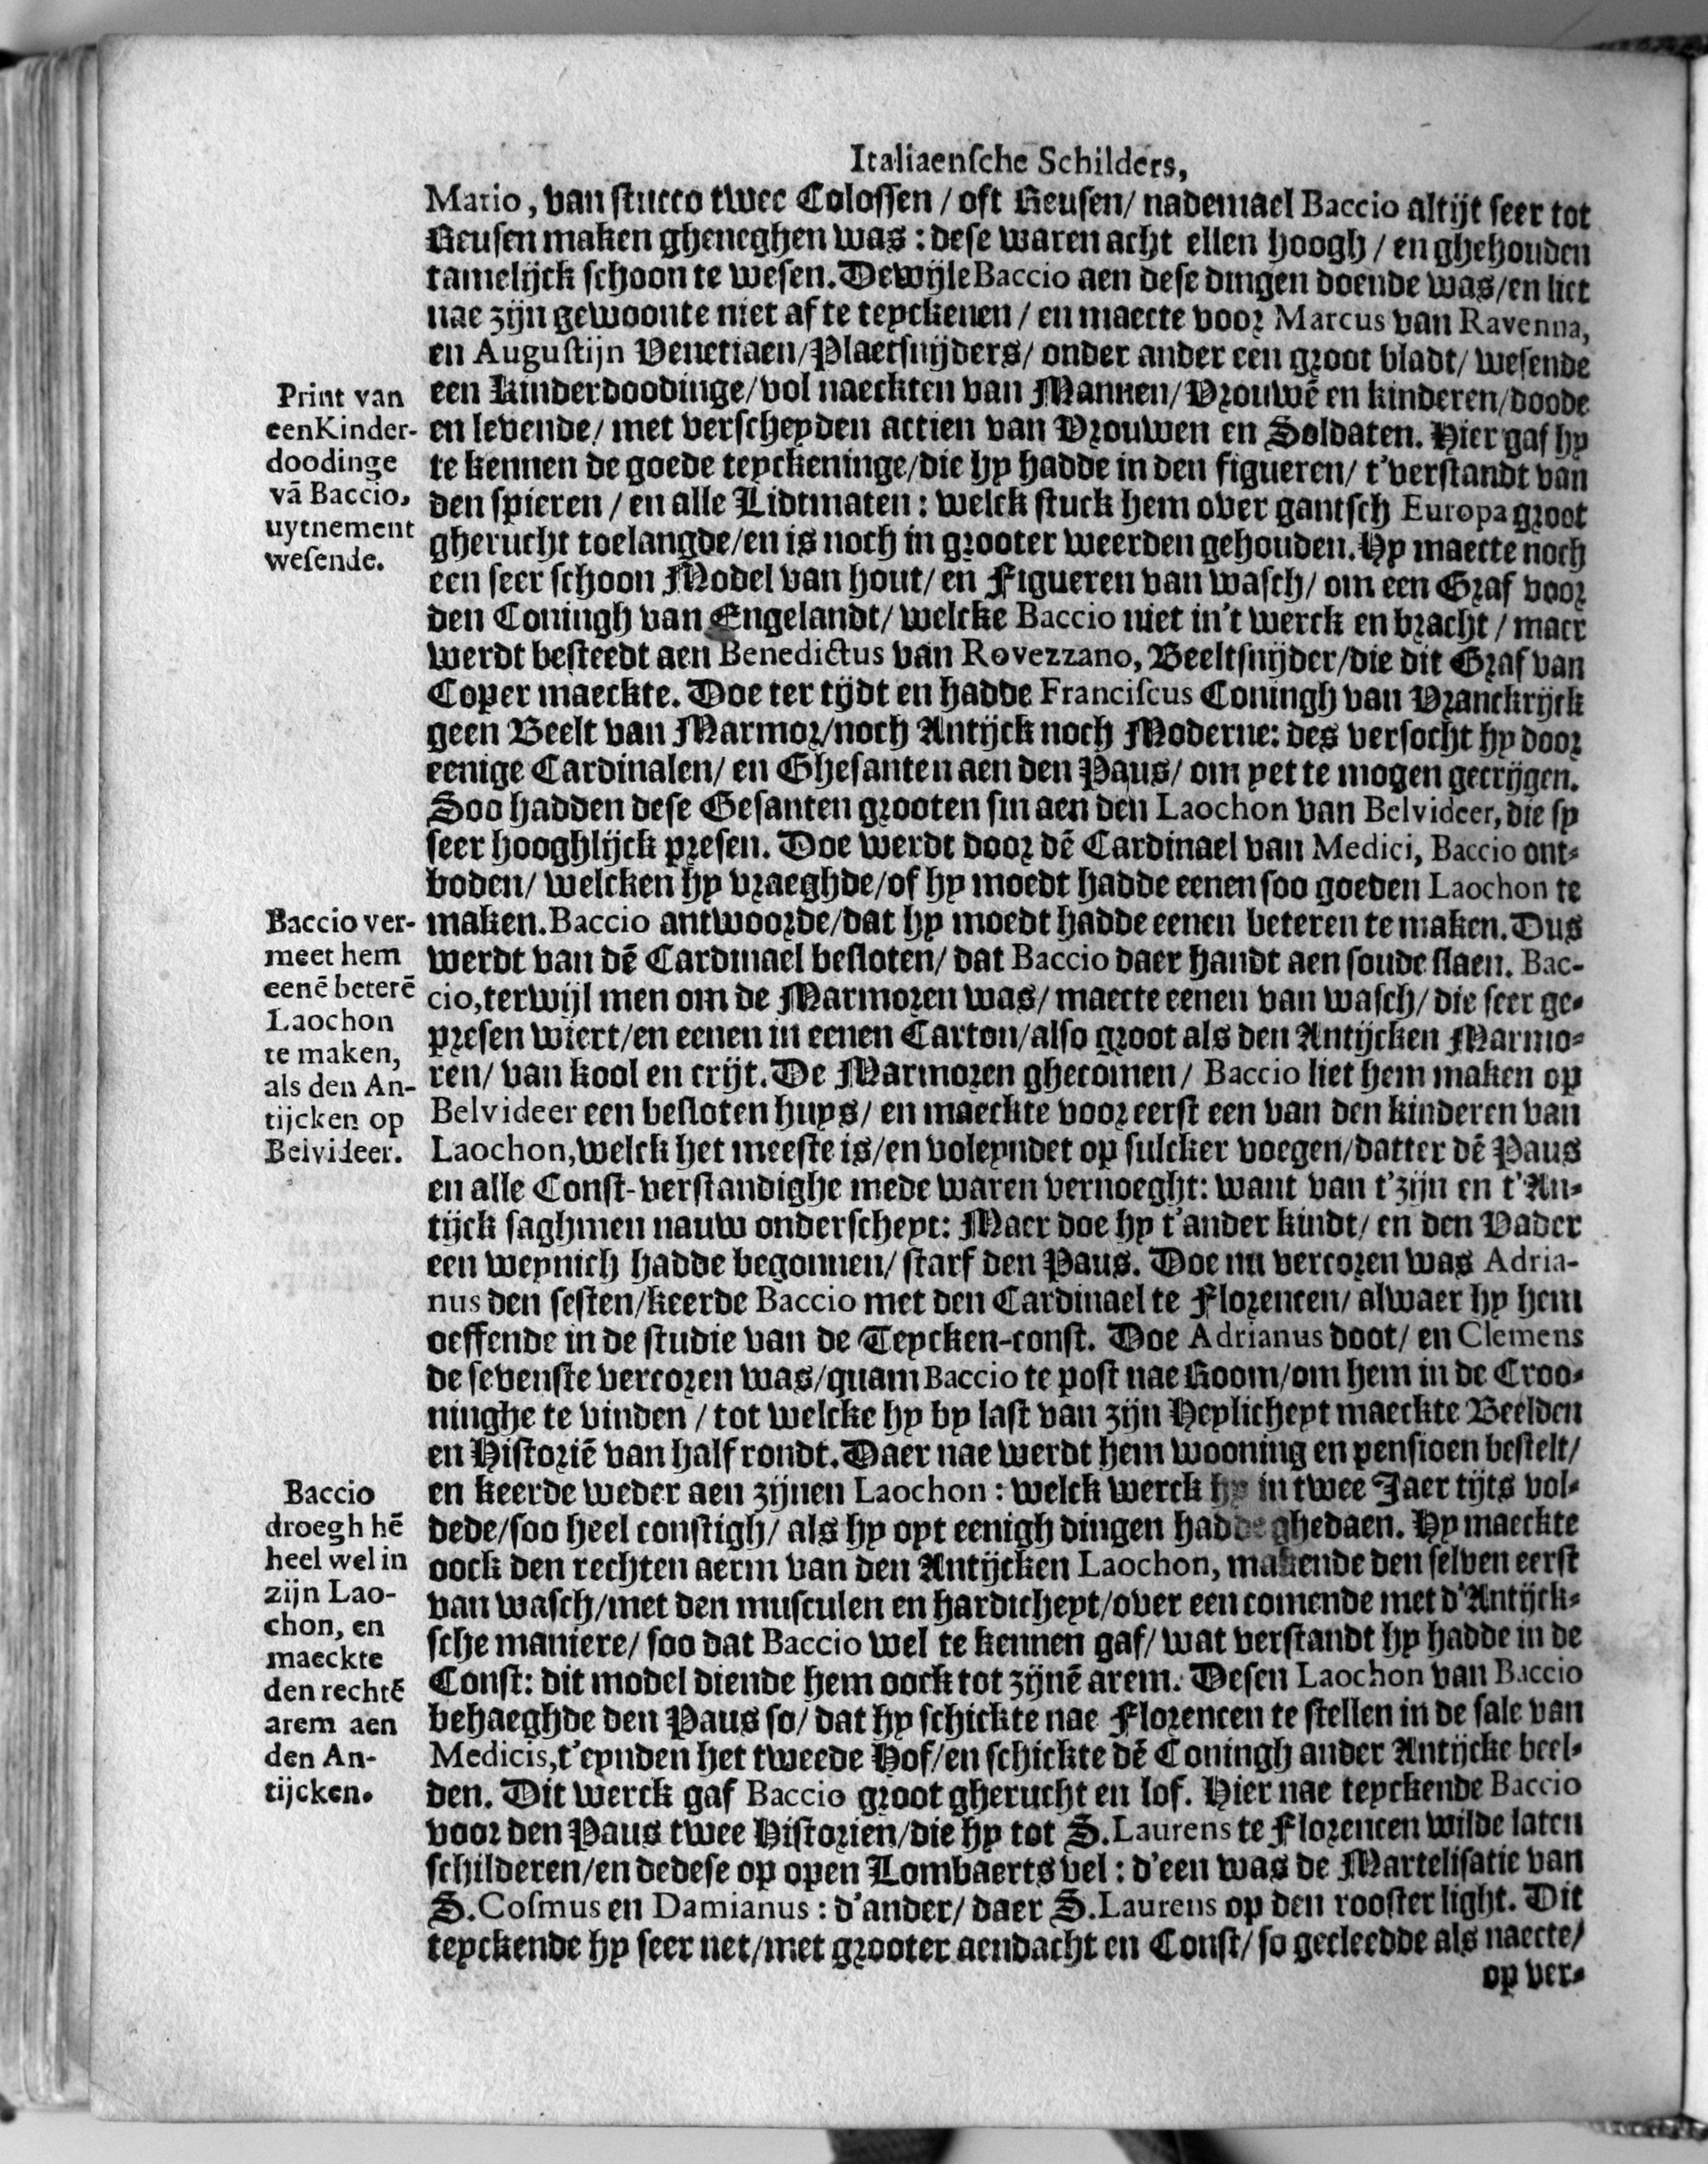 Italiaensche Schilders,
Mario, van stucco twee Colossen / oft Reusen / nademael Baccio altijt seer tot
Reusen maken gheneghen was : dese waren acht ellen hoogh / en ghehouden
tamelijck schoon te wesen. Dewijle Baccio aen dese dingen doende was / en liet
nae zijn gewoonte niet af te teyckenen / en maecte voor Marcus van Ravenna,
en Augustijn Venetiaen / Plaetsnijders / onder ander een groot bladt / wesende
Print van
eenKinder-
doodinge
vã Baccio,
uytnement
wesende.
een Kinderdoodinge / vol naeckten van Mannen / Vrouwẽ en kinderen / doode
en levende / met verscheyden actien van Vrouwen en Soldaten. Hier gaf hy
te kennen de goede teyckeninge / die hy hadde in den figueren / t'verstandt van
den spieren / en alle Lidtmaten : welck stuck hem over gantsch Europa groot
gherucht toelangde / en is noch in grooter weerden gehouden. Hy maecte noch
een seer schoon Model van hout / en Figueren van wasch / om een Graf voor
den Coningh van Engelandt / welcke Baccio niet in't werck en bracht / maer
werdt besteedt aen Benedictus van Rovezzano, Beeltsnijder / die dit Graf van
Coper maeckte. Doe ter tijdt en hadde Franciscus Coningh van Vranckrijck
geen Beelt van Marmor / noch Antijck noch Moderne : des versocht hy door
eenige Cardinalen / en Ghesanten aen den Paus / om yet te mogen gecrijgen.
Soo hadden dese Gesanten grooten sin aen den Laochon van Belvideer, die sy
seer hooghlijck presen. Doe werdt door dẽ Cardinael van Medici, Baccio ont-
boden / welcken hy vraeghde / of hy moedt hadde eenen soo goeden Laochon te
Baccio ver-
meet hem
eenẽ beterẽ
Laochon
te maken,
als den An-
tijcken op
Belvideer.
maken. Baccio antwoorde / dat hy moedt hadde eenen beteren te maken. Dus
werdt van dẽ Cardinael besloten / dat Baccio daer handt aen soude slaen. Bac-
cio, terwijl men om de Marmoren was / maecte eenen van wasch / die seer ge-
presen wiert / en eenen in eenen Carton / also groot als den Antijcken Marmo-
ren / van kool en crijt. De Marmoren ghecomen / Baccio liet hem maken op
Belvideer een besloten huys / en maeckte voor eerst een van den kinderen van
Laochon, welck het meeste is / en voleyndet op sulcker voegen / datter dẽ Paus
en alle Const-verstandighe mede waren vernoeght : want van t'zijn en t'An-
tijck saghmen nauw onderscheyt : Maer doe hy t'ander kindt / en den Vader
een weynich hadde begonnen / starf den Paus. Doe nu vercoren was Adria-
nus den sesten / keerde Baccio met den Cardinael te Florencen / alwaer hy hem
oeffende in de studie van de Teycken-const. Doe Adrianus doot / en Clemens
de sevenste vercoren was / quam Baccio te post nae Room / om hem in de Croo-
ninghe te vinden / tot welcke hy by last van zijn Heylicheyt maeckte Beelden
en Historiẽ van half rondt. Daer nae werdt hem wooning en pensioen bestelt /
Baccio
droegh hẽ
heel wel in
zijn Lao-
chon, en
maeckte
den rechtẽ
arem aen
den An-
tijcken.
en keerde weder aen zijnen Laochon : welck werck hy in twee Jaer tijts vol-
dede / soo heel constigh / als hy oyt eenigh dingen hadde ghedaen. Hy maeckte
oock den rechten aerm van den Antijcken Laochon, makende den selven eerst
van wasch / met den musculen en hardicheyt / over een comende met d'Antijck-
sche maniere / soo dat Baccio wel te kennen gaf / wat verstandt hy hadde in de
Const : dit model diende hem oock tot zijnẽ arem. Desen Laochon van Baccio
behaeghde den Paus so / dat hy schickte nae Florencen te stellen in de sale van
Medicis, t'eynden het tweede Hof / en schickte dẽ Coningh ander Antijcke beel-
den. Dit werck gaf Baccio groot gherucht en lof. Hier nae teyckende Baccio
voor den Paus twee Historien / die hy tot S. Laurens te Florencen wilde laten
schilderen / en dedese op open Lombaerts vel : d'een was de Martelisatie van
S. Cosmus en Damianus : d'ander / daer S. Laurens op den rooster light. Dit
teyckende hy seer net / met grooter aendacht en Const / so gecleedde als naecte /
op ver-